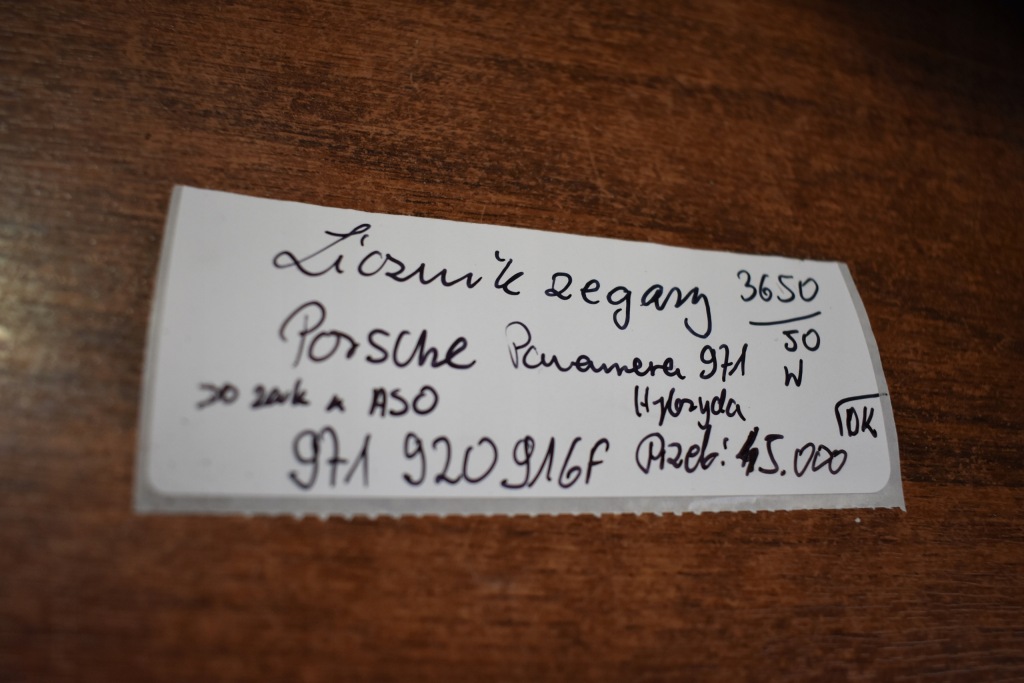 Licznik zegary 3650
50
Porsche Panamera 971 W
ASO Hybryda
DK
971 920 916F Przeb: 45.000